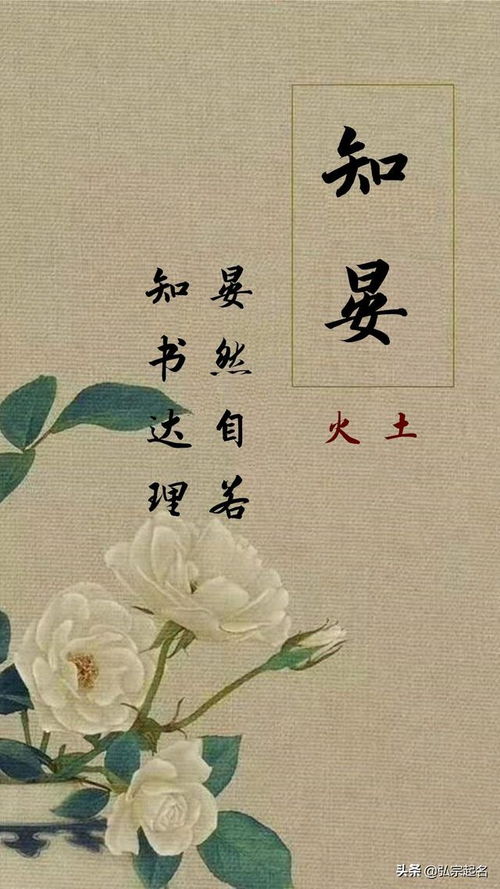 知晏
火 土
晏然自若
知书达理
头条 @弘宗起名